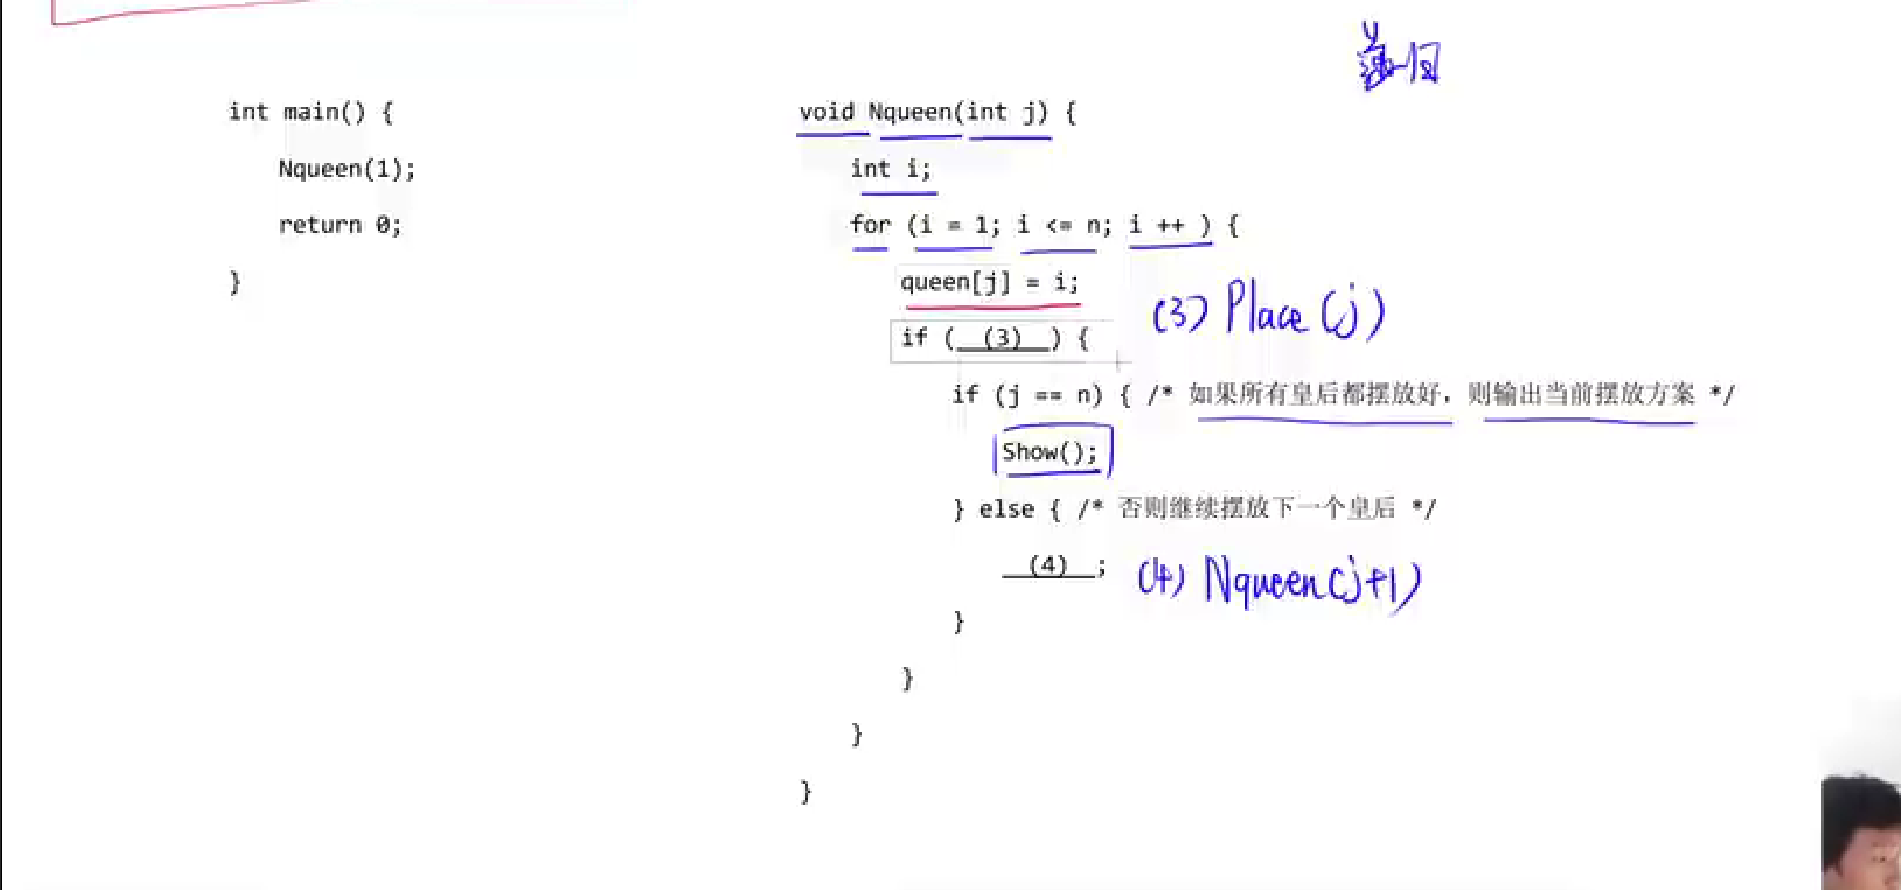 递归
int main() {
Nqueen(1);
return 0;
}
void Nqueen(int j) {
int i;
for (i = 1; i <= n; i ++ ) {
queen[j] = i;
if ( (3) ) {
(3) Place(j)
if (j == n) { /* 如果所有皇后都摆放好，则输出当前摆放方案 */
Show();
} else { /* 否则继续摆放下一个皇后 */
(4) ;
(4) Nqueen(j+1)
}
}
}
}